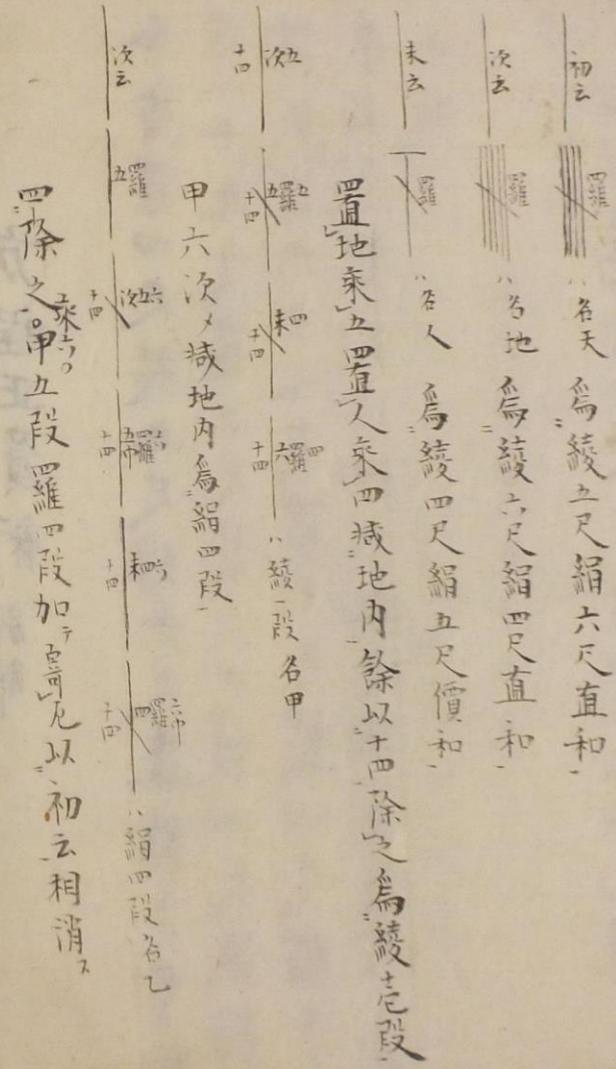 初云 羅 ハ名天 爲綾五尺絹六尺直和
次云 羅 ハ名地 爲綾六尺絹四尺直和
末云 羅 ハ名人 爲綾四尺絹五尺價和
置地乘五置人乘四減地内餘以十四除之爲綾壱段
五次 十四 五羅五 十四 四末 十四 四羅六 十四 ハ綾一段名甲
甲六次〆減地内爲絹四段
次云 羅五 六五次 十四 六羅五巾 十四 六四末 十四 六巾羅四 十四 ハ絹四段名乙
四除之乘六甲五段羅四段加テ寄左以初云相消ス